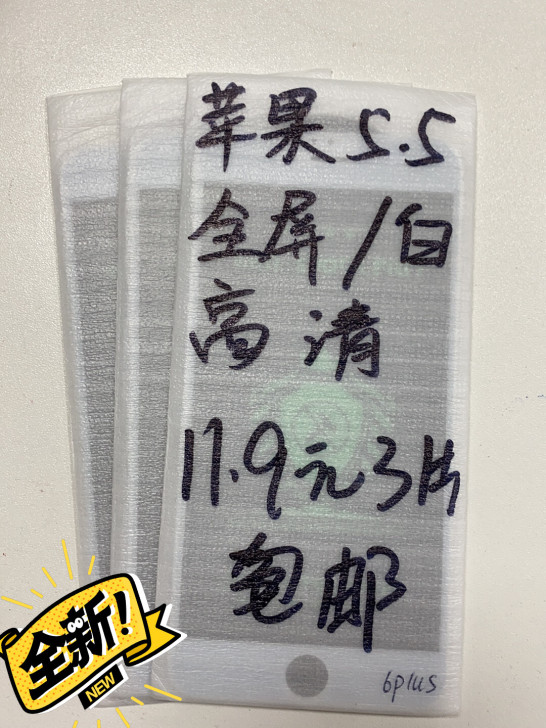 苹果5.5
全屏/白
高清
11.9元3片
包邮
6plus
全新!
NEW